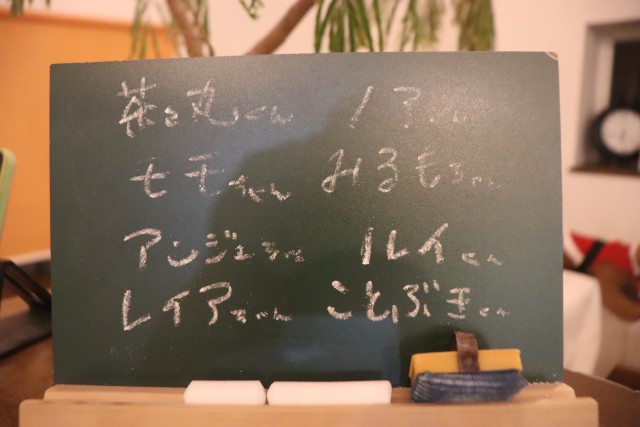 茶々丸くん ノア
モモちゃん みるもちゃん
アンジュちゃん ルイくん
レイアちゃん ことぶきくん